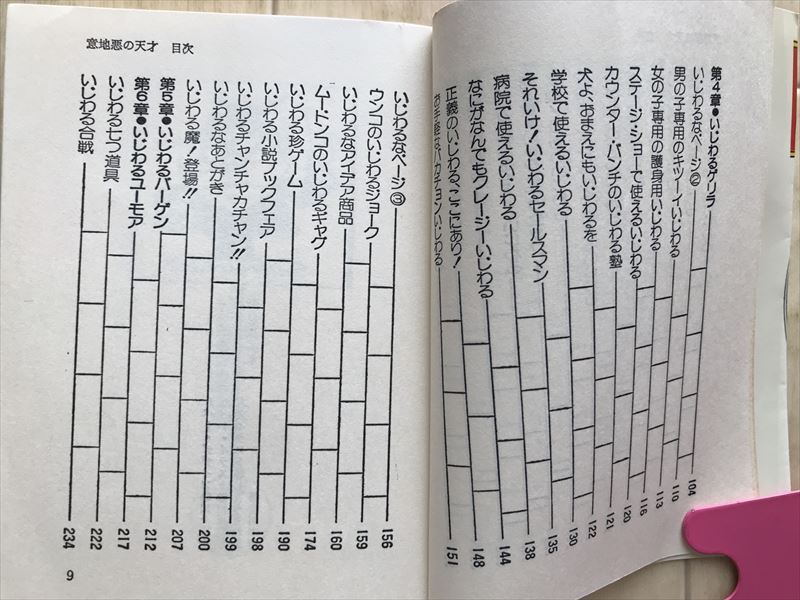 第4章●いじわるゲリラ 104
いじわるなページ② 110
男の子専用のキツーイいじわる 113
女の子専用の護身用いじわる 116
ステージ・ショーで使えるいじわる 120
カウンター・パンチのいじわる塾 121
犬よ、おまえにもいじわるを 122
学校で使えるいじわる 130
それいけ!いじわるセールスマン 135
病院で使えるいじわる 138
なにがなんでもクレージーいじわる 144
正義のいじわる、ここにあり! 148
お手軽なバカチョンいじわる 151
意地悪の天才 目次
いじわるなページ③ 156
ウンコのいじわるジョーク 159
いじわるなアイデア商品 160
ムードンコのいじわるギャグ 174
いじわる珍ゲーム 190
いじわる小説ブックフェア 198
いじわるチャンチャカチャン!! 199
いじわるなあとがき 200
いじわる魔!登場!! 207
第5章●いじわるバーゲン 212
第6章●いじわるユーモア 217
いじわる七つ道具 222
いじわる合戦 234
9